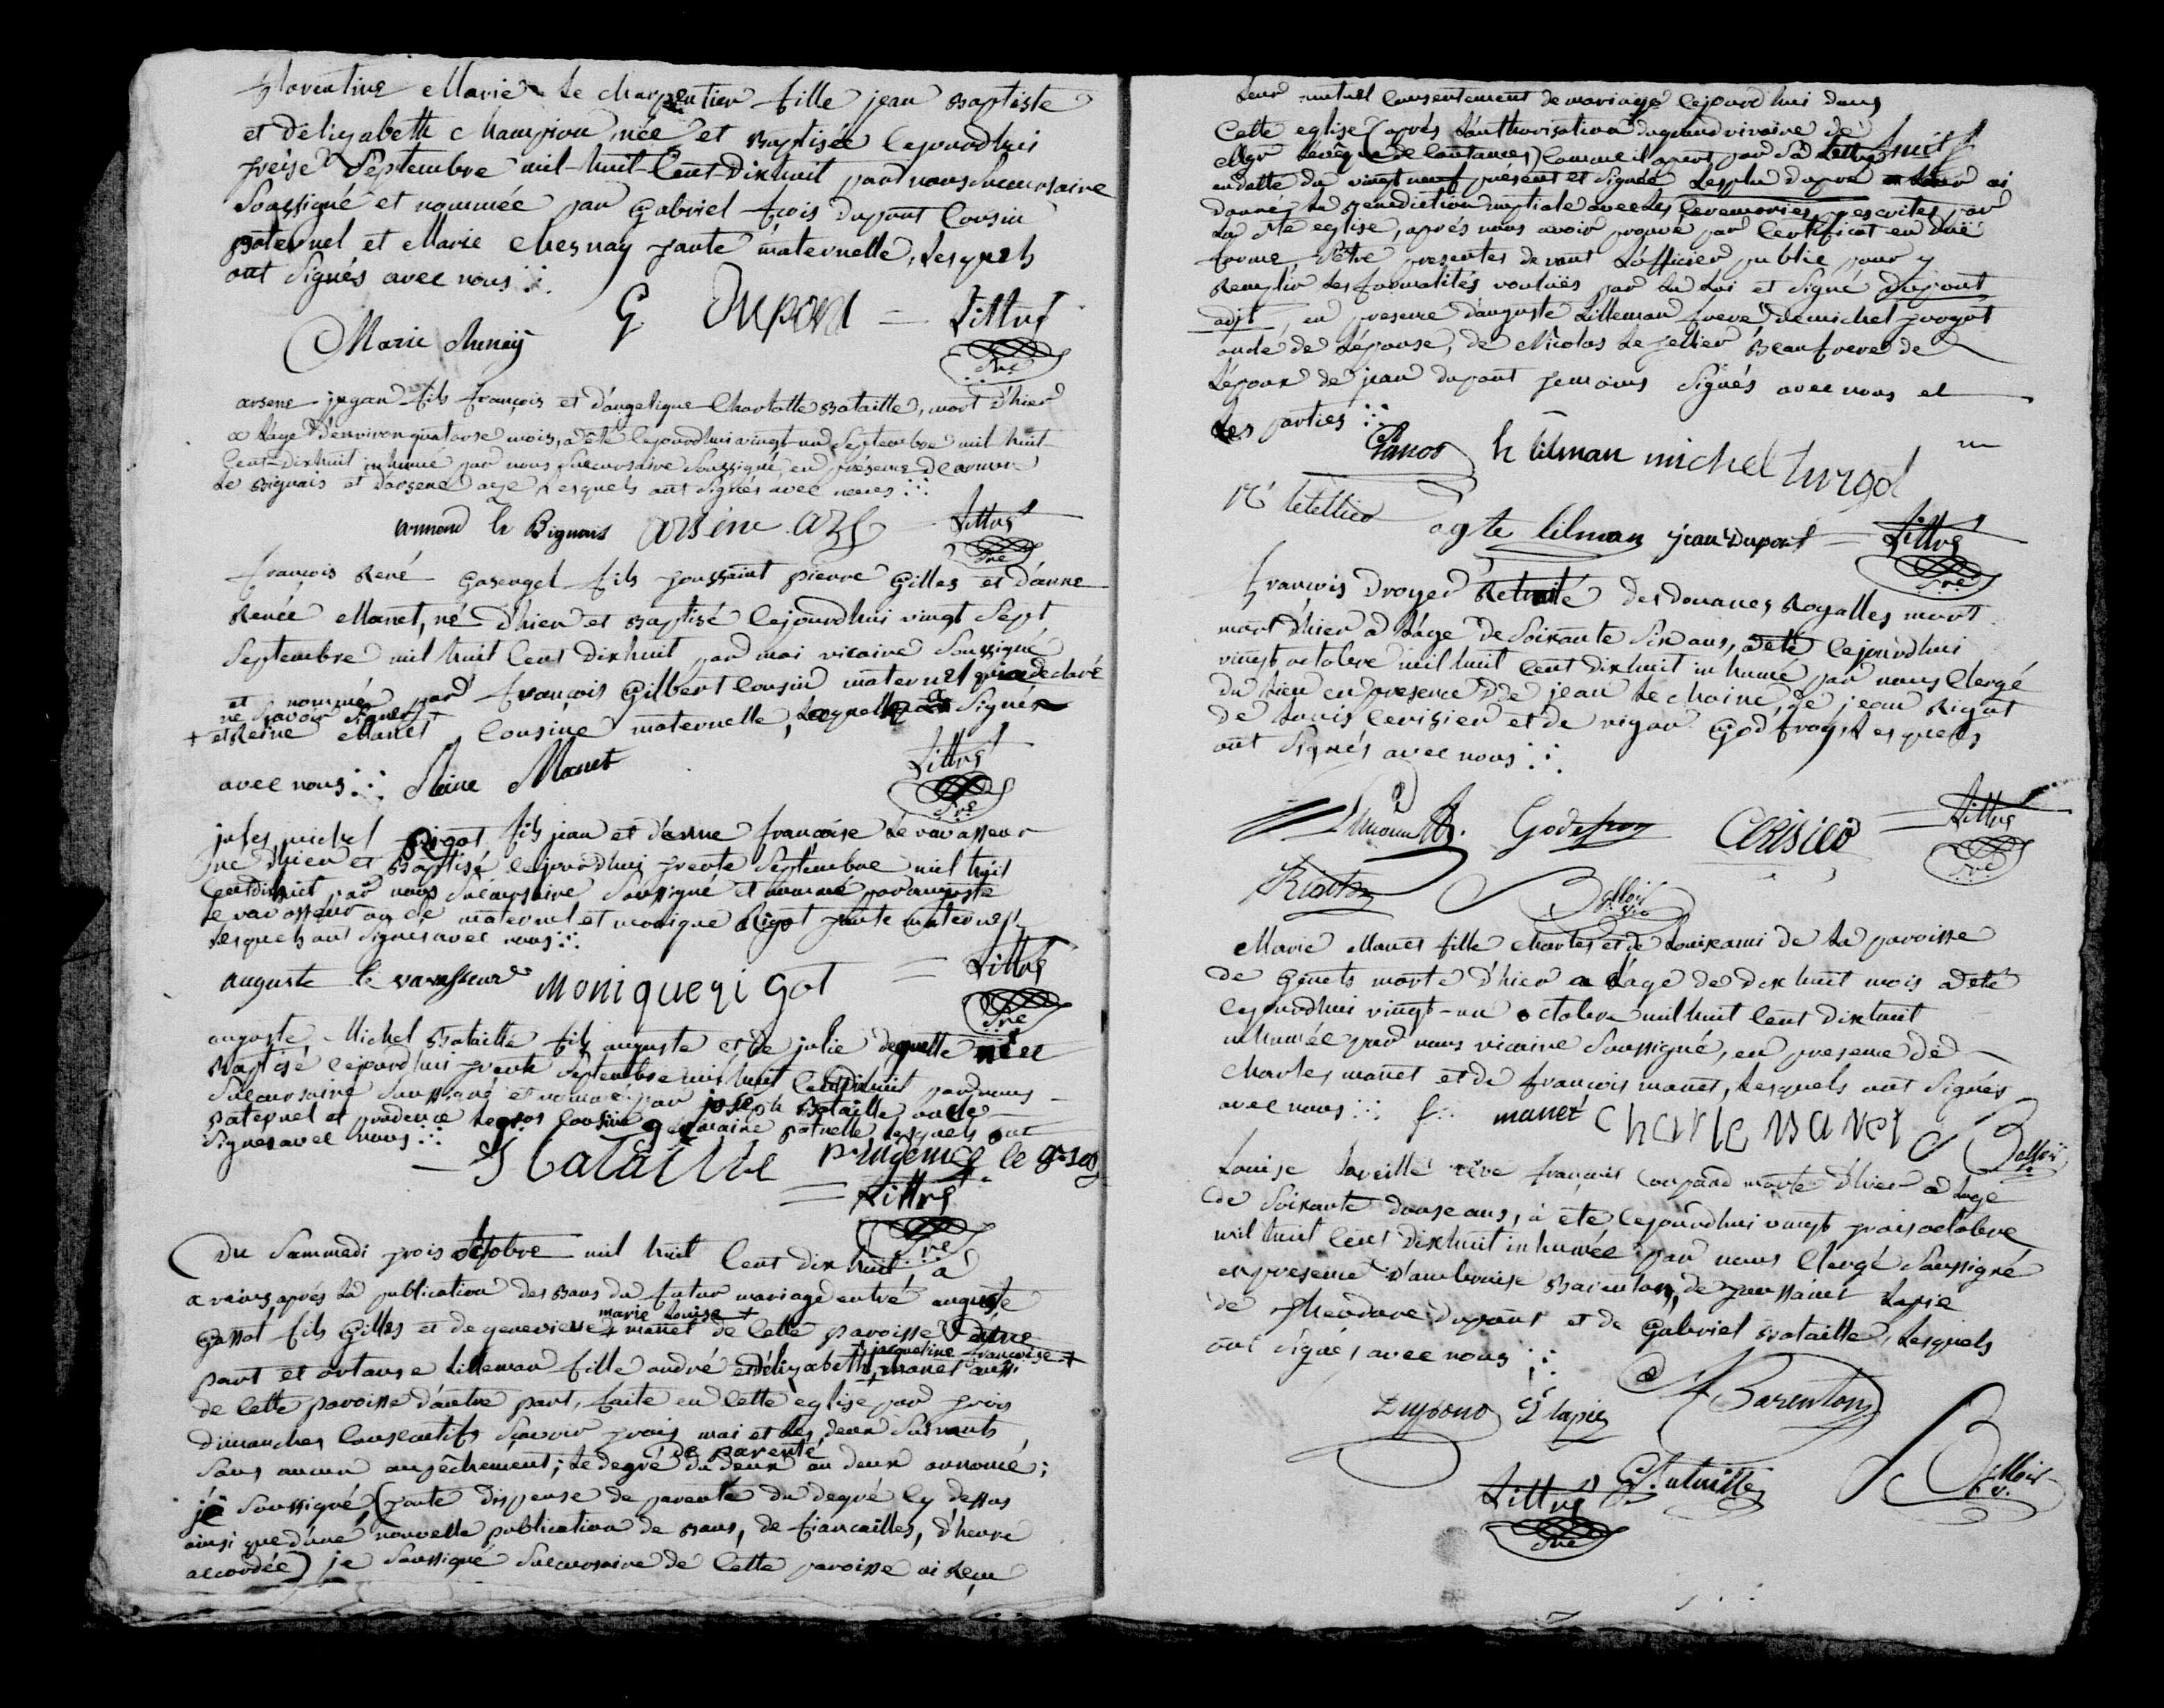 florentine Marie Le charpentier fille jean Baptiste
et d'élizabeth champion née et Baptisée cejourdhui
treise Septembre mil-huit-Cent-Dixhuit par nous Succursaire
Soussigné et nommée par Gabriel fçois dupont Cousin
paternel et Marie Chesnay tante maternelle, Lesquels
ont Signés avec nous
G Dupont Littré
Marie chenay Sre
arsene jugan fils françois et d'angelique Charlotte Bataille, mort d'hier
a L'age d'environ quatorse mois, a été cejourdhui vingt-un Septembre mil huit-
Cent-dixhuit inhumé par nous Succursaire Soussigné, en présence De armand
Le Bignais et d'arsene aze Lesquels ont Signés avec nous
armand le Bignais arsène aze Littré
Sre
françois René Gosengel fils toussaint pierre Gilles et d'anne
Renée Manet, né d'hier et Baptisé cejourdhui vingt Sept
Septembre mil huit Cent dixhuit par moi vicaire Soussigné
et nommé par françois Gilbert Cousin maternel qui a declaré
ne Savoir Signer
+ et Reine Manet Cousine maternelle, Laquelle a Signée
avec nous Reine Manet Littré
Sre
jules michel Rigot fils jean et d'anne françoise Le vavasseur
né d'hier et Baptisé cejourdhui trente Septembre mil huit
Cent dixhuit par nous Succursaire Soussigné et nommé par auguste
Le vavasseur oncle maternel et monique Rigot tante maternel,
Lesquels ont Signés avec nous
auguste le vavasseur Moniquerigot Littré
Sre
auguste Michel Bataille fils auguste et de julie deguelle né et
Baptisé cejourdhui trente Septembre mil huit Cent Dixhuit par nous
Succursaire Soussigné et nommé par joseph Bataille oncle
paternel et prudence Legros Cousine germaine paternelle, Lesquels ont
Signés avec nous
J bataille prudence le gros
Littré
Sre
Du Sammedi trois octobre mil huit Cent dix huit, a
avains après La publication des Bans du futur mariage entre auguste
marie Louise +
Gassot fils Gilles et de genevieve + manet de Cette paroisse d'une
+ jacqueline françoise +
part et ortanse Lilleman fille andré et d'élizabeth + manet aussi
de Cette paroisse d'autre part, faite en Cette eglise par trois
dimanches Consecutifs Sçavoir trois mai et les deux Suivants
Sans aucun empêchement; Le degré de parenté du deux au deux annoncé;
je Soussigné (toute dispense de parenté du degré cy dessus
ainsi que d'une nouvelle publication de Bans, de fiancailles, d'heure
accordée) je Soussigné Succursaire de Cette paroisse ai Reçu
Leur mutuel Consentement de mariage cejourdhui dans
Cette eglise (après L'authorisation du grand vicaire de
Mgr L'évêque de Coutances) Comme il apert par Sa Lettre
en datte du vingt neuf présent et Signée ai
donné La Benediction nuptiale avec les Ceremonies prescrites par
La Ste eglise, après nous avoir prouvé par Certificat en duë
forme S'être presentés devant L'officier public pour y
Remplir Les formalités vouluës par La Loi et Signé dupont
adjt en presence d'auguste Lilleman frere de michel turgot
oncle de L'épouse, de Nicolas Le tellier Beaufrere de
L'epoux de jean dupont temoins Signés avec nous et
Les parties
h lilman michel turgot
N letellier agte lilman jean Dupont Littré
Sre
françois Droyer Retraité des Douanes Royalles mort
mort d'hier a L'age de Soixante Six ans, a été cejourdhui
vingt octobre mil huit Cent dixhuit inhumé par nous Clergé
du Lieu en presence de jean Le choine, de jean Rigot
de Louis Cerisier et de vigor Godfroy, Lesquels
ont Signés avec nous
Godefroy Cerisier Littré
Sre
Marie Manet fille charles et de Louise ami de La paroisse
de Genets morte d'hier a L'age de dix huit mois a été
cejourdhui vingt-un octobre mil huit Cent dixhuit
inhumée par nous vicaire Soussigné, en presence de
charles manet et de françois manet, Lesquels ont Signés
avec nous f manet Charle manet
Louise Laveille vëve françois Coupard morte d'hier a L'age
de Soixante douse ans, a été cejourdhui vingt trois octobre
mil huit Cent Dixhuit inhumée par nous Clergé Soussigné
en presence d'ambroise Barenton, de toussaint Lapie
de theodore dupont et de Gabriel Bataille, Lesquels
ont Signés avec nous
Dupont T lapie Barenton
Littré G. Bataille
Sre